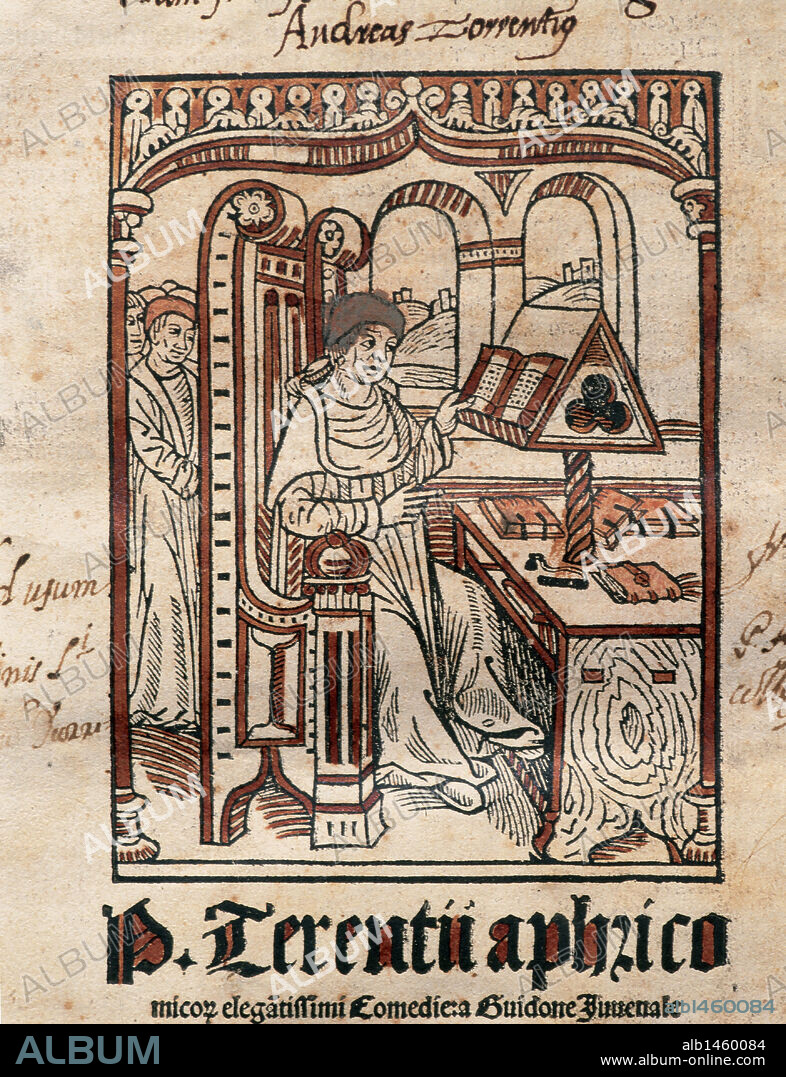 Andreas Torrentiq
d usum
nis Li
P. Terentii aphrico
micoꝝ elegātissimi Comedie: a Guidone Juuenale
alb1460084
ALBUM
alb1460084
www.album-online.com